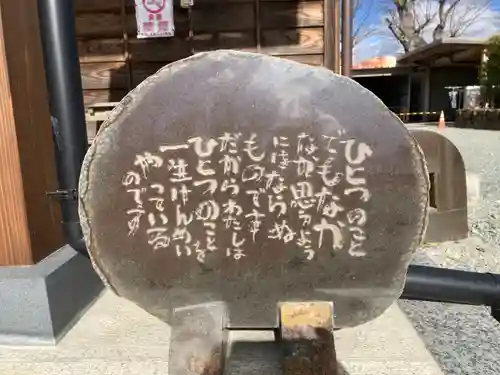 ひとつのこと
でもなかなか
思うように
はならぬ
ものです
だからわたしは
ひとつのことを
一生けんめい
やっている
のです